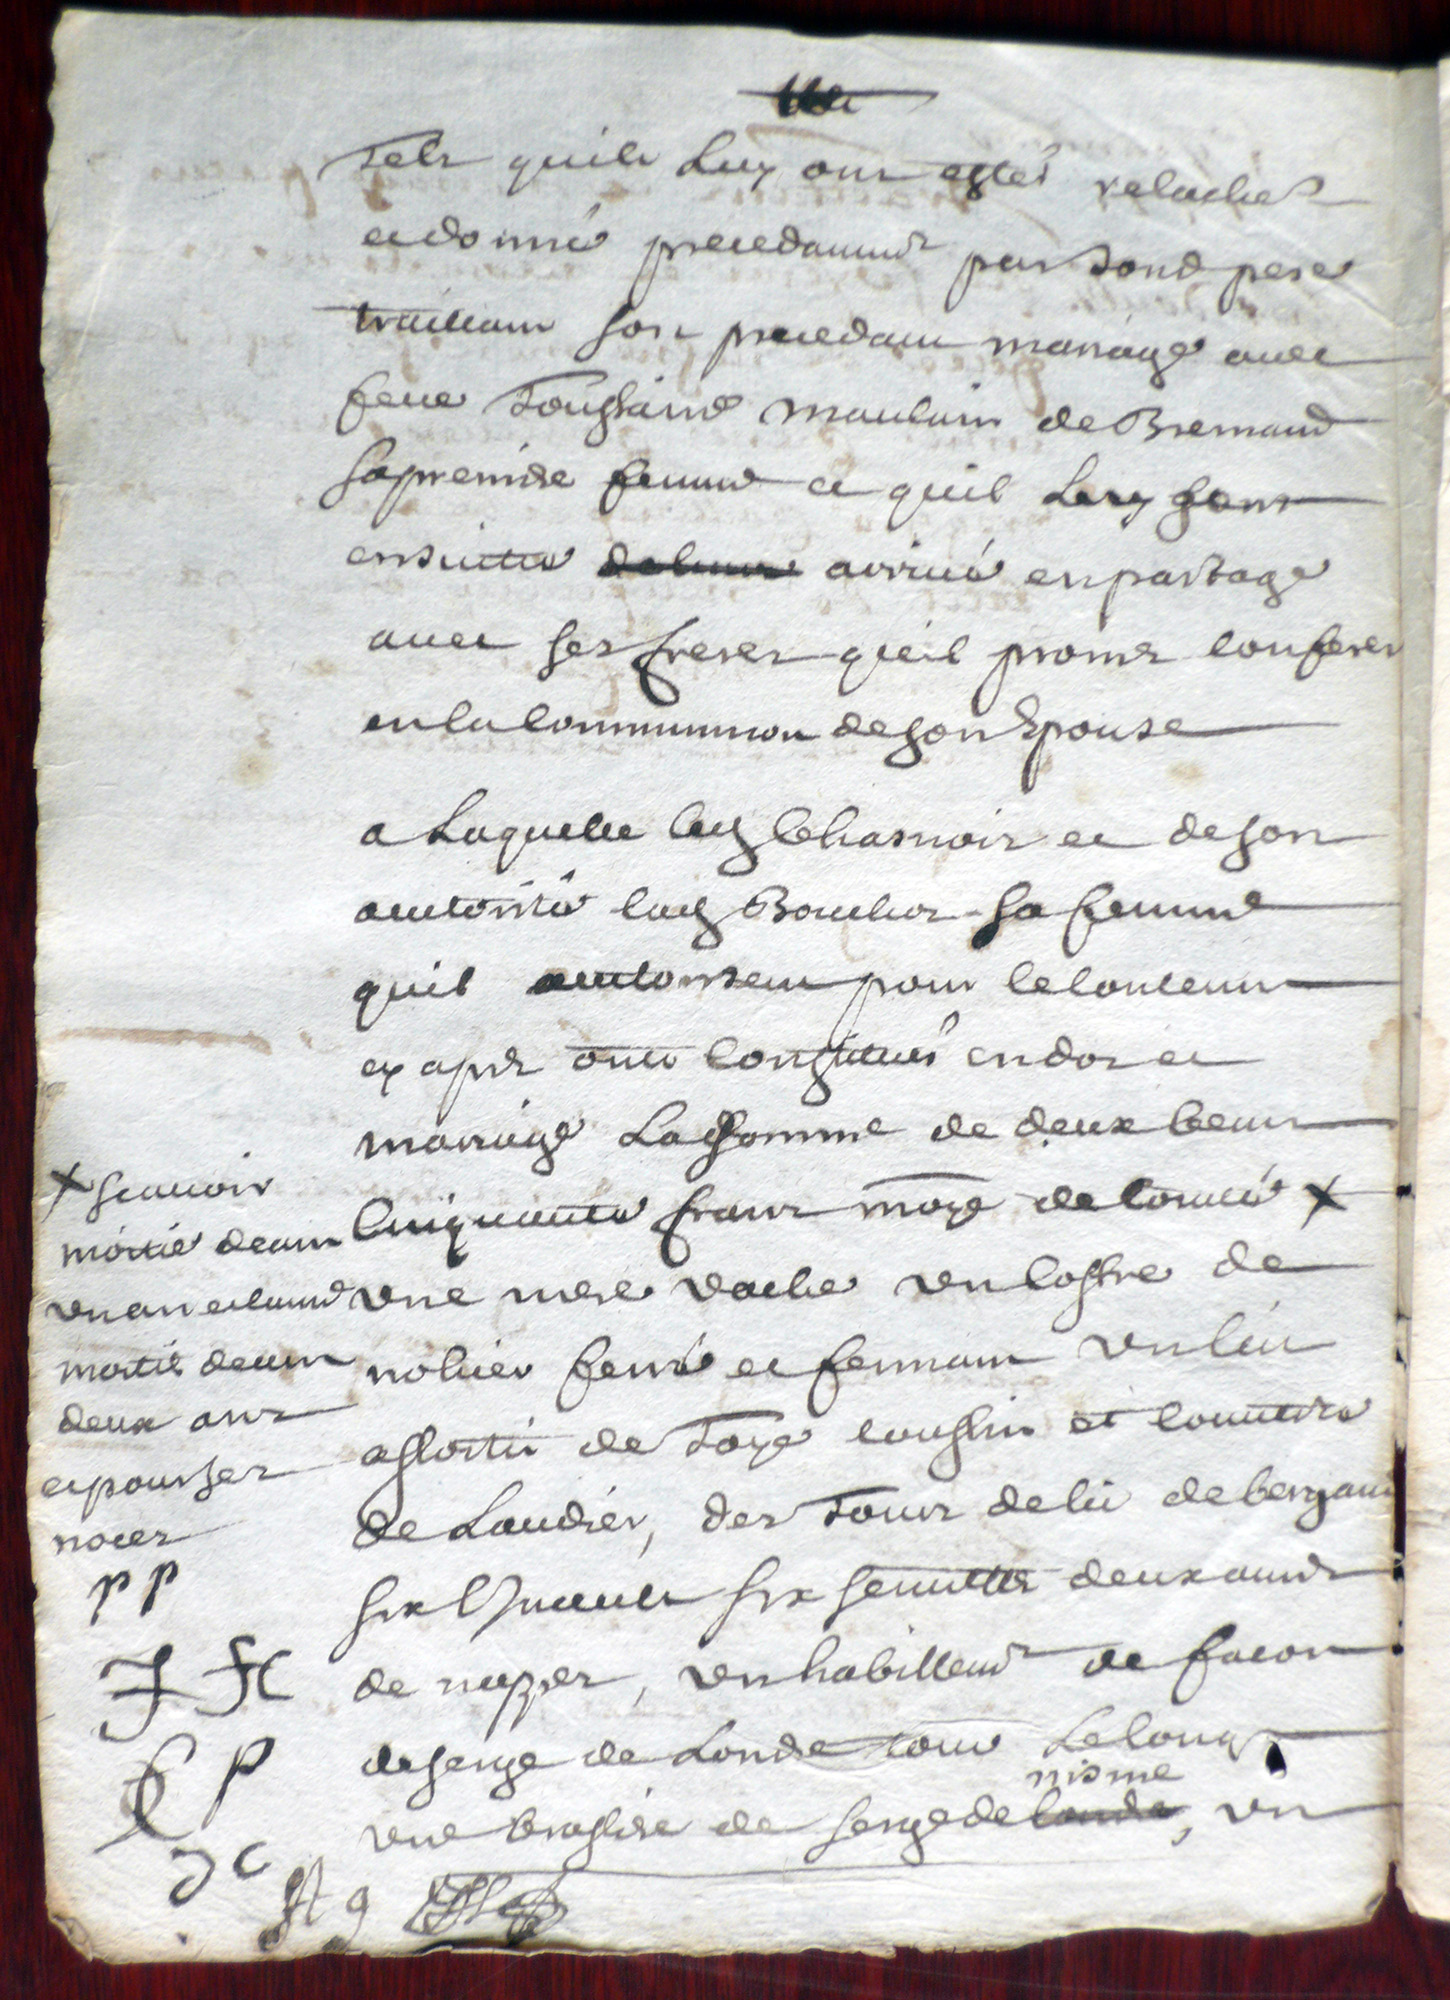 Tels quils Luy ont estés relachés
et donné precedammt par sond pere
traittant son precedant mariage avec
feue Toussainé Maulain de Bremand
sa premiere femme et quil Luy sont
ensuitte arrivé en partage
avec ses freres quil promet conferer
en la communion de son Epouse
a Laquelle led Chasnoir et de son
autorité lad Boucher sa femme
quil autorisent pour le contenu
cy apres ont constitués en dot et
mariage La somme de deux cent
Cinquante francs monoye de comté X
une mere vache un coffre de
nohier ferré et fermant un lit
assortit de Toye coussin et couverte
de Laudier, des Tours de lit de bergame
six Linceuls six serviettes deux aunes
de nappes, un habillemt de facon
de serge de Londre tout Le long
une brassiere de serge de nisme, un
X scavoir
moitié dean
un an et laud
moitié dean
deux ans
et pour ses
noces
pp
J fC
P
JC